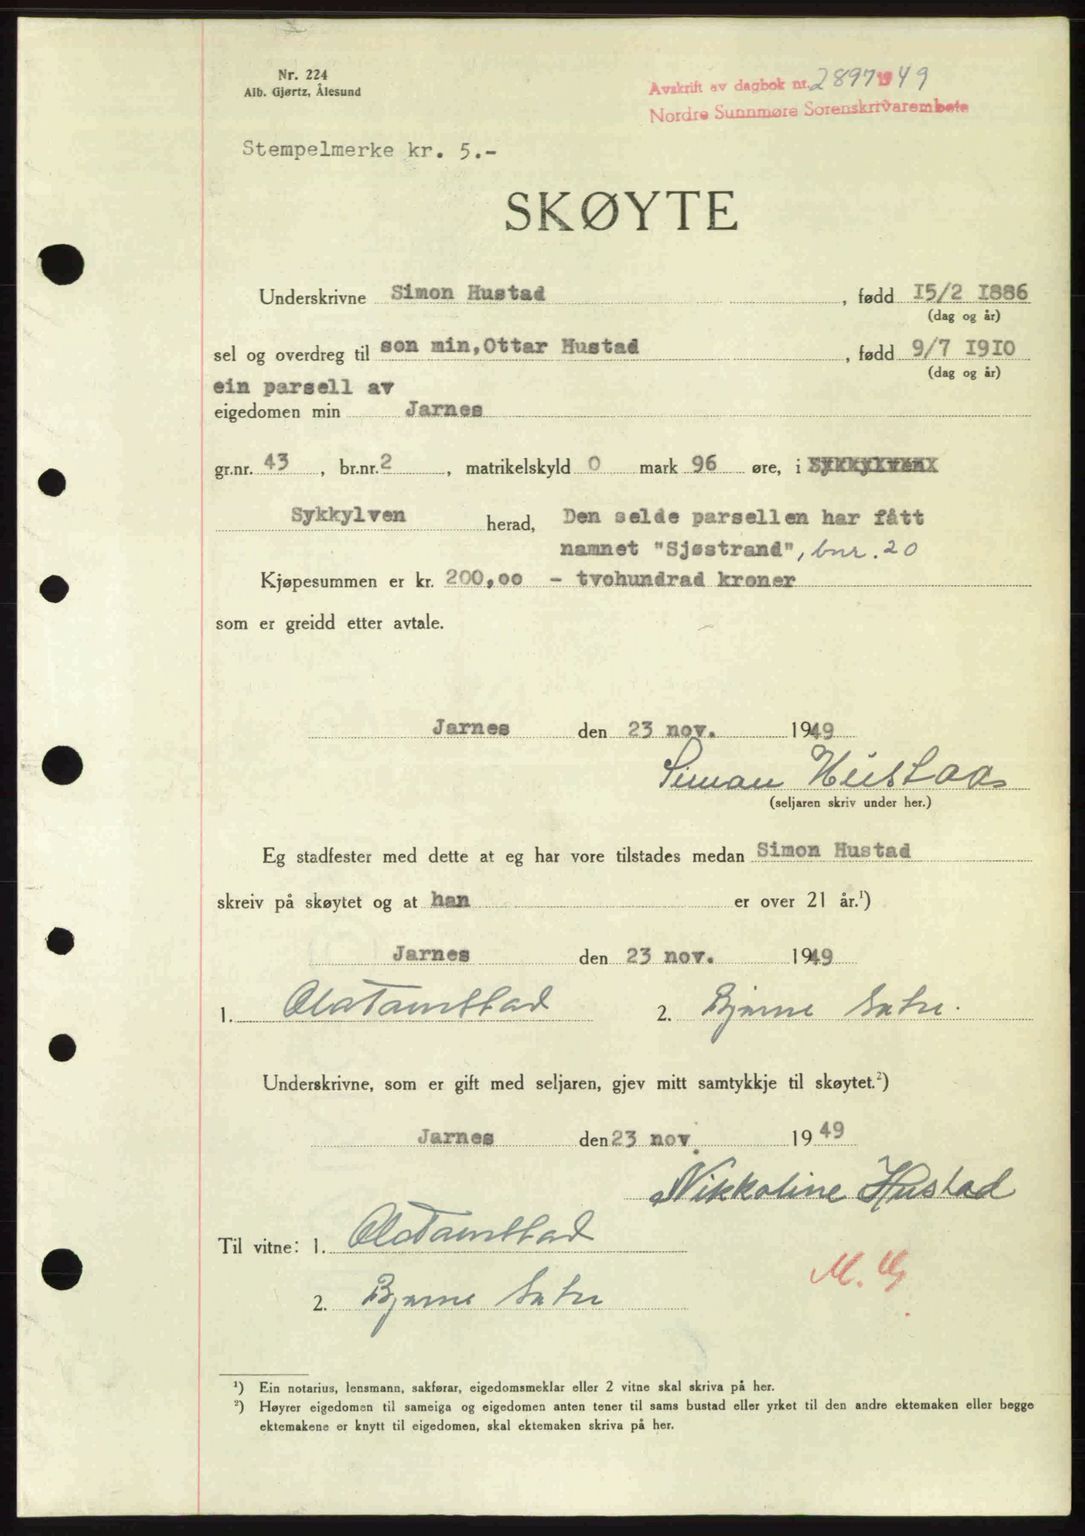 Nr. 224
Alb. Gjørtz, Ålesund
Avskrift av dagbok nr. 2897 1949
Nordre Sunnmøre Sorenskrivarembete
Stempelmerke kr. 5.-
SKØYTE
Underskrivne Simon Hustad, fødd 15/2 1886
(dag og år)
sel og overdreg til son min, Ottar Hustad, fødd 9/7 1910
(dag og år)
ein parsell av
eigedomen min Jarnes
gr.nr. 43, br.nr. 2, matrikelskyld 0 mark 96 øre, i
Sykkylven herad, Den selde parsellen har fått
namnet "Sjøstrand", bnr. 20
Kjøpesummen er kr. 200,00 - tvohundrad kroner
som er greidd etter avtale.
Jarnes den 23 nov. 1949
Simon Hustad
(seljaren skriv under her.)
Eg stadfester med dette at eg har vore tilstades medan Simon Hustad
skreiv på skøytet og at han er over 21 år.¹)
Jarnes den 23 nov. 1949
1. Ola Tamstad 2. Bjarne Sætre.
Underskrivne, som er gift med seljaren, gjev mitt samtykkje til skøytet.²)
Jarnes den 23 nov. 1949
Nikkoline Hustad
Til vitne: 1. Ola Tamstad
M. G.
2. Bjarne Sætre
¹) Ein notarius, lensmann, sakførar, eigedomsmeklar eller 2 vitne skal skriva på her.
²) Høyrer eigedomen til sameiga og eigedomen anten tener til sams bustad eller yrket til den andre ektemaken eller begge
ektemakene er knytt til eigedomen, skal ektemaken skriva på her.